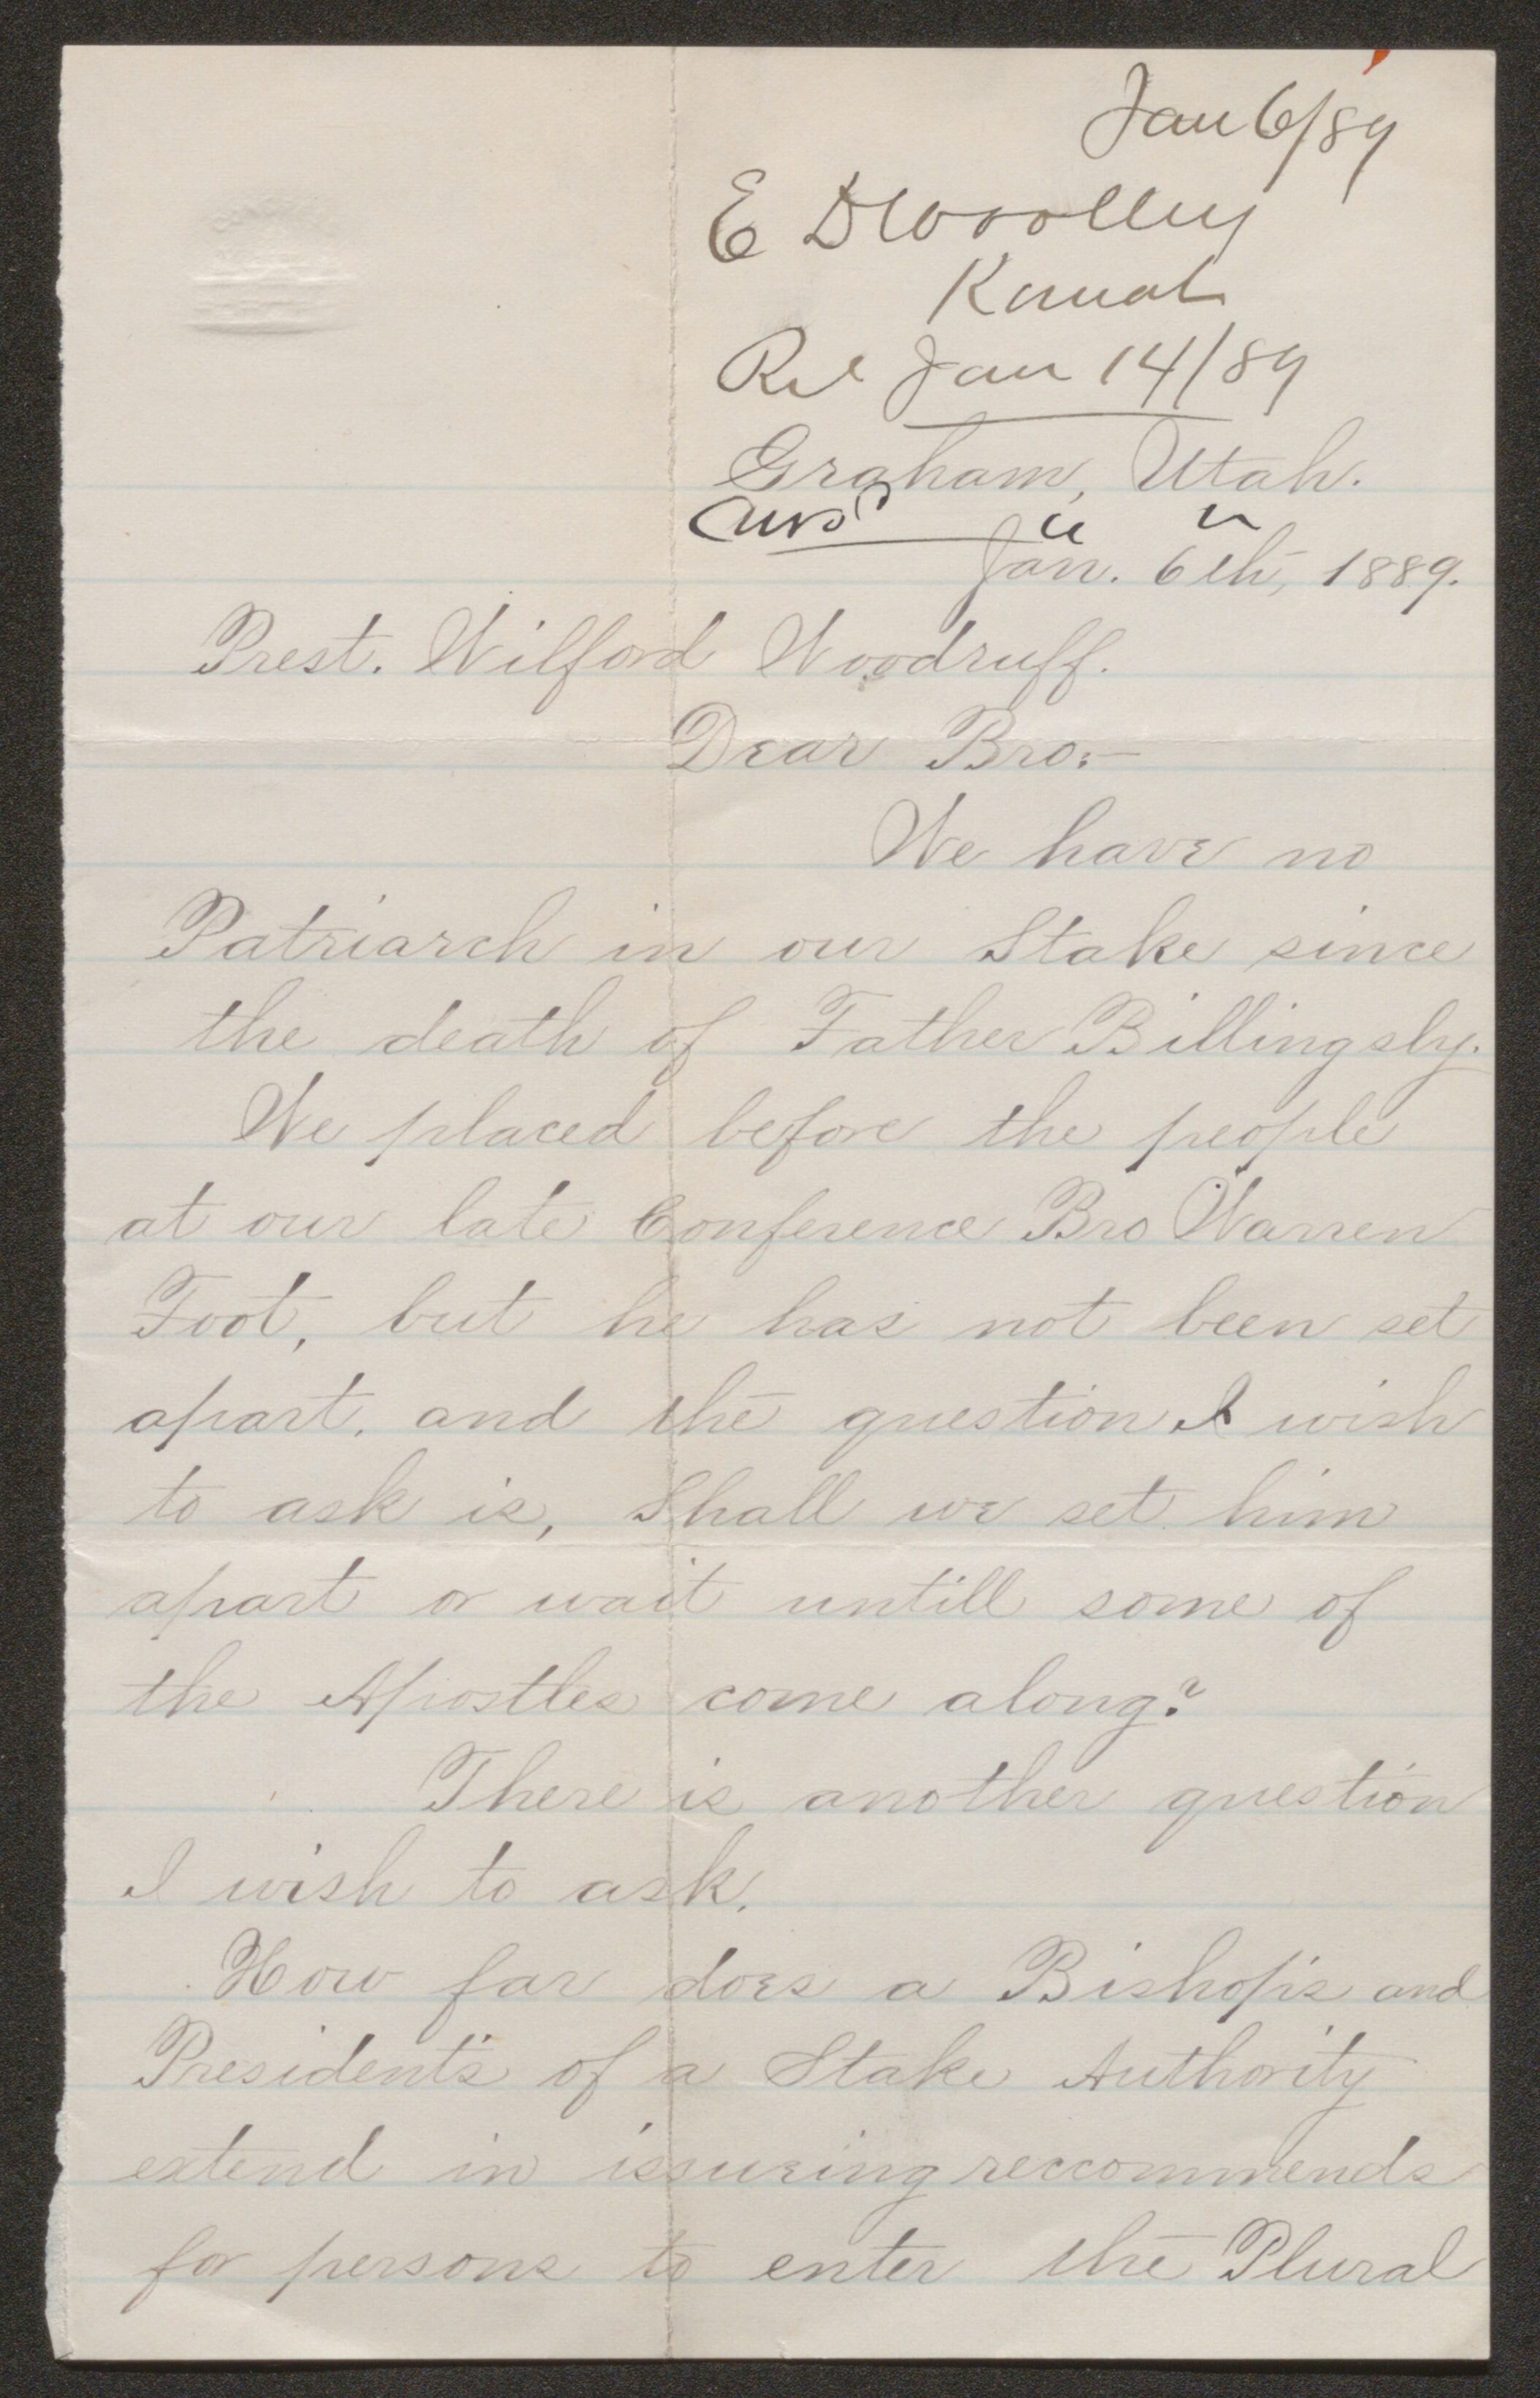 Jan 6/89
E D Woolley
Kanab
Rec Jan 14/89
Graham, Utah.
Ansd " "
Jan. 6th, 1889.
Prest. Wilford Woodruff.
Dear Bro:—
We have no
Patriarch in our Stake since
the death of Father Billingsly.
We placed before the people
at our late Conference Bro Warren
Foot, but he has not been set
apart, and the question I wish
to ask is, Shall we set him
apart or wait untill some of
the Apostles come along?
There is another question
I wish to ask.
How far does a Bishop's and
President's of a Stake Authority
extend in issueing reccommends
for persons to enter the Plural